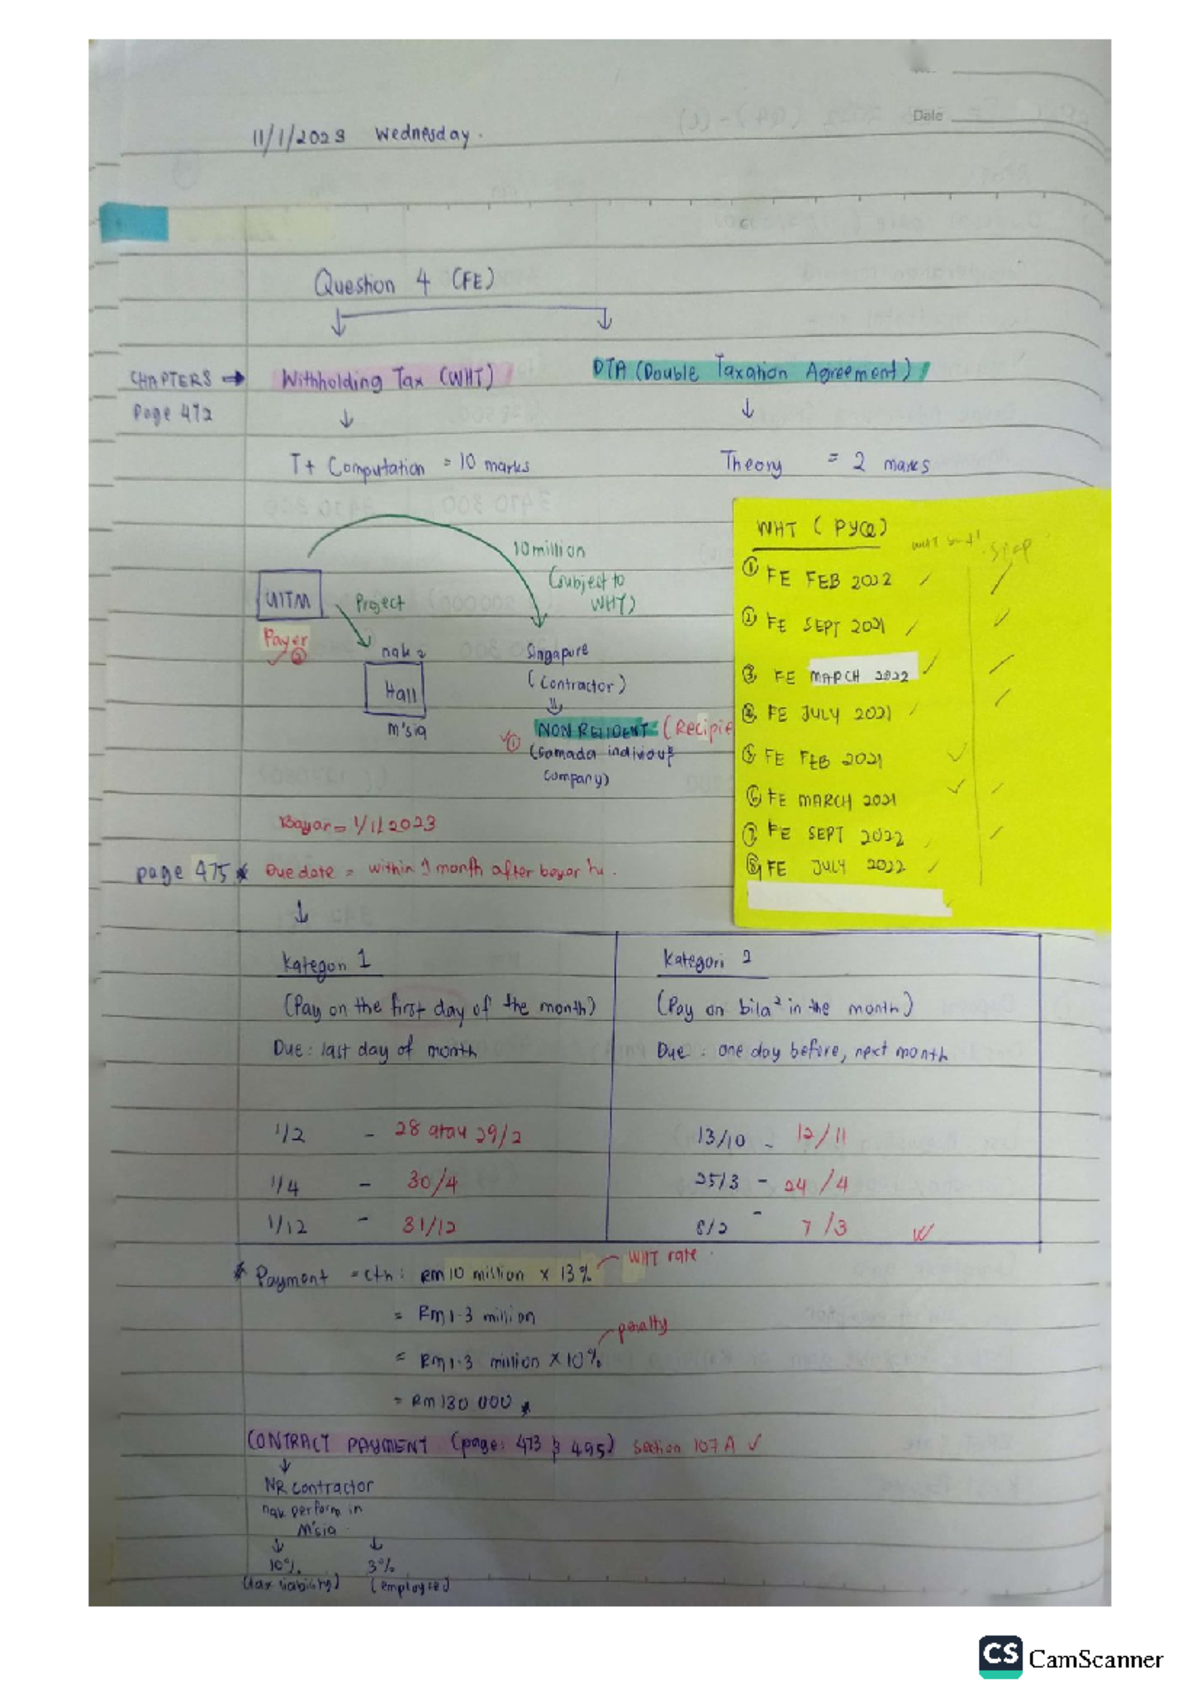 Date
11/1/2023 Wednesday.
Question 4 (FE)
CHAPTERS → Withholding Tax (WHT)
DTA (Double Taxation Agreement)
Page 472
T + Computation = 10 marks
Theory = 2 marks
WHT (PYQ)
① FE FEB 2022
② FE SEPT 2021
③ FE MARCH 2022
④ FE JULY 2021
⑤ FE FEB 2021
⑥ FE MARCH 2021
⑦ FE SEPT 2022
⑧ FE JULY 2022
10 million
(subject to
WHT)
UITM
Project
Payer
②
nak 2
Hall
M'sia
Singapore
(Contractor)
① NON RESIDENT = (Recipie
(samada individu/
company)
Bayar = 1/1/2023
page 475 * Due date = within 1 month after bayar tu.
Kategori 1
(Pay on the first day of the month)
Due: last day of month
1/2 - 28 atau 29/2
1/4 - 30/4
1/12 - 31/12
Kategori 2
(Pay on bila² in the month)
Due: one day before, next month
13/10 - 12/11
25/3 - 24/4
8/2 - 7/3
* Payment = cth: RM10 million x 13% WHT rate
= RM1.3 million
= RM1.3 million x 10% penalty
= RM130 000 *
CONTRACT PAYMENT (page: 473 & 495) Section 107A ✓
NR contractor
nak perform in
M'sia
10% 3%
(tax liability) (employee)
CS CamScanner